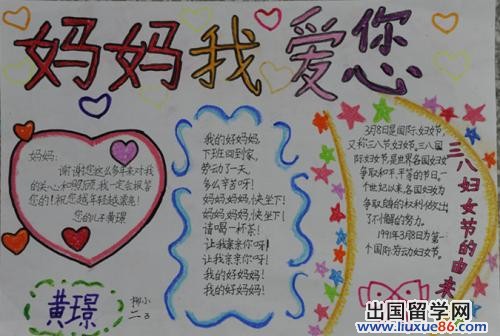 妈妈我爱您
妈妈:
谢谢您这么多年来对我
的关心和照顾,我一定会报答
您的!祝您越年轻越漂亮!
您的儿子黄璟
黄璟
柳小
二3
我的好妈妈,
下班回到家,
劳动了一天,
多么辛苦呀!
妈妈妈妈快坐下!
妈妈妈妈快坐下!
请喝一杯茶!
让我亲亲你呀!
让我亲亲你呀!
我的好妈妈!
我的好妈妈!
3月8日是国际妇女节,
又称三八节妇女节,三八国
际妇女节,是世界各国妇女
争取和平、平等的节日。一
个世纪以来,各国妇女为
争取自身的权利做出
了不懈的努力。
1991年3月8日为第一
个国际劳动妇女节。
三八妇女节的由来
出国留学网
www.liuxue86.com